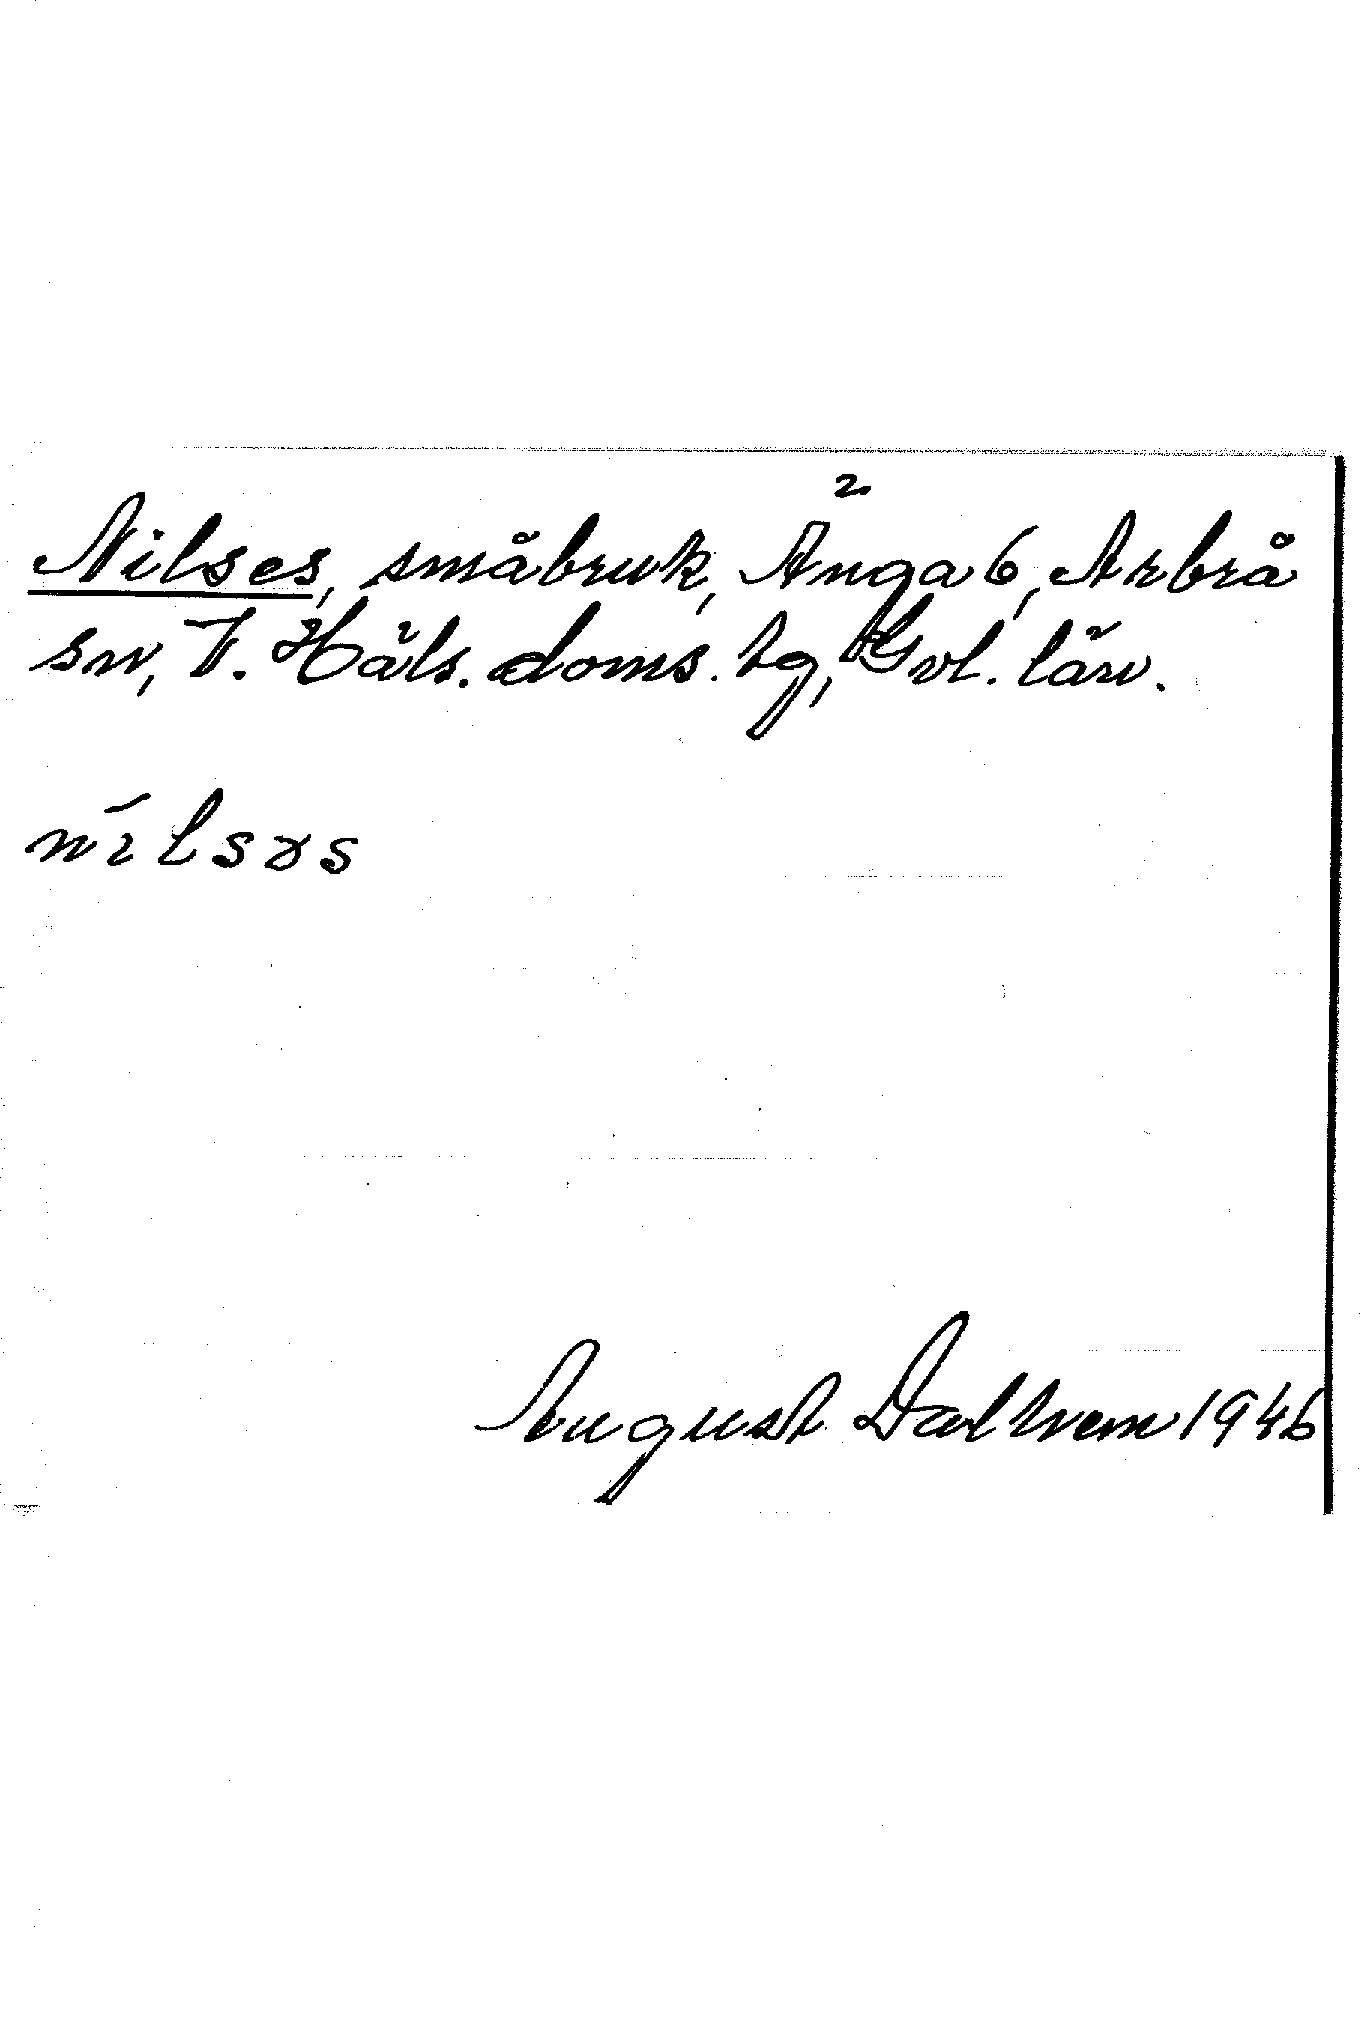 2.
Nilses, småbruk, Änga 6, Arbrå
sn, V. Häls. doms. tg, Gvl. län.
nílsəs
August Dalhem 1946